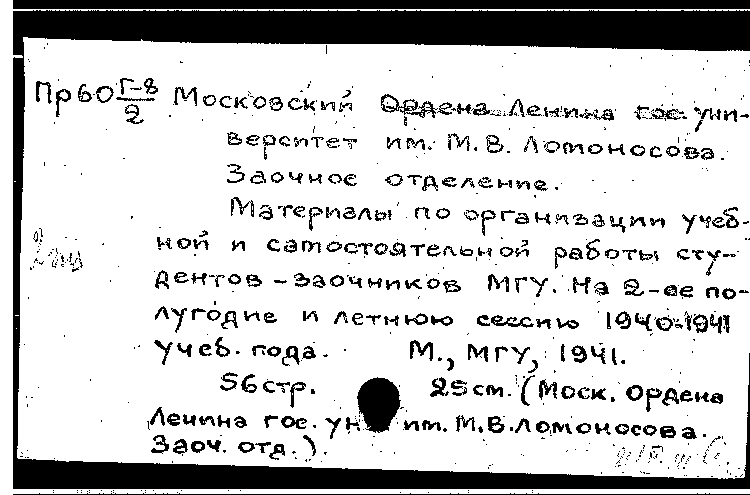 Пр60 Г-8/2 Московский Ордена Ленина гос. уни-
верситет им. М.В. Ломоносова.
Заочное отделение.
Материалы по организации учеб-
ной и самостоятельной работы сту-
дентов-заочников МГУ. На 2-ое по-
лугодие и летнюю сессию 1940-1941
учеб. года. М., МГУ, 1941.
56 стр. 25 см. (Моск. Ордена
Ленина гос. ун им. М.В. Ломоносова.
Заоч. отд.).